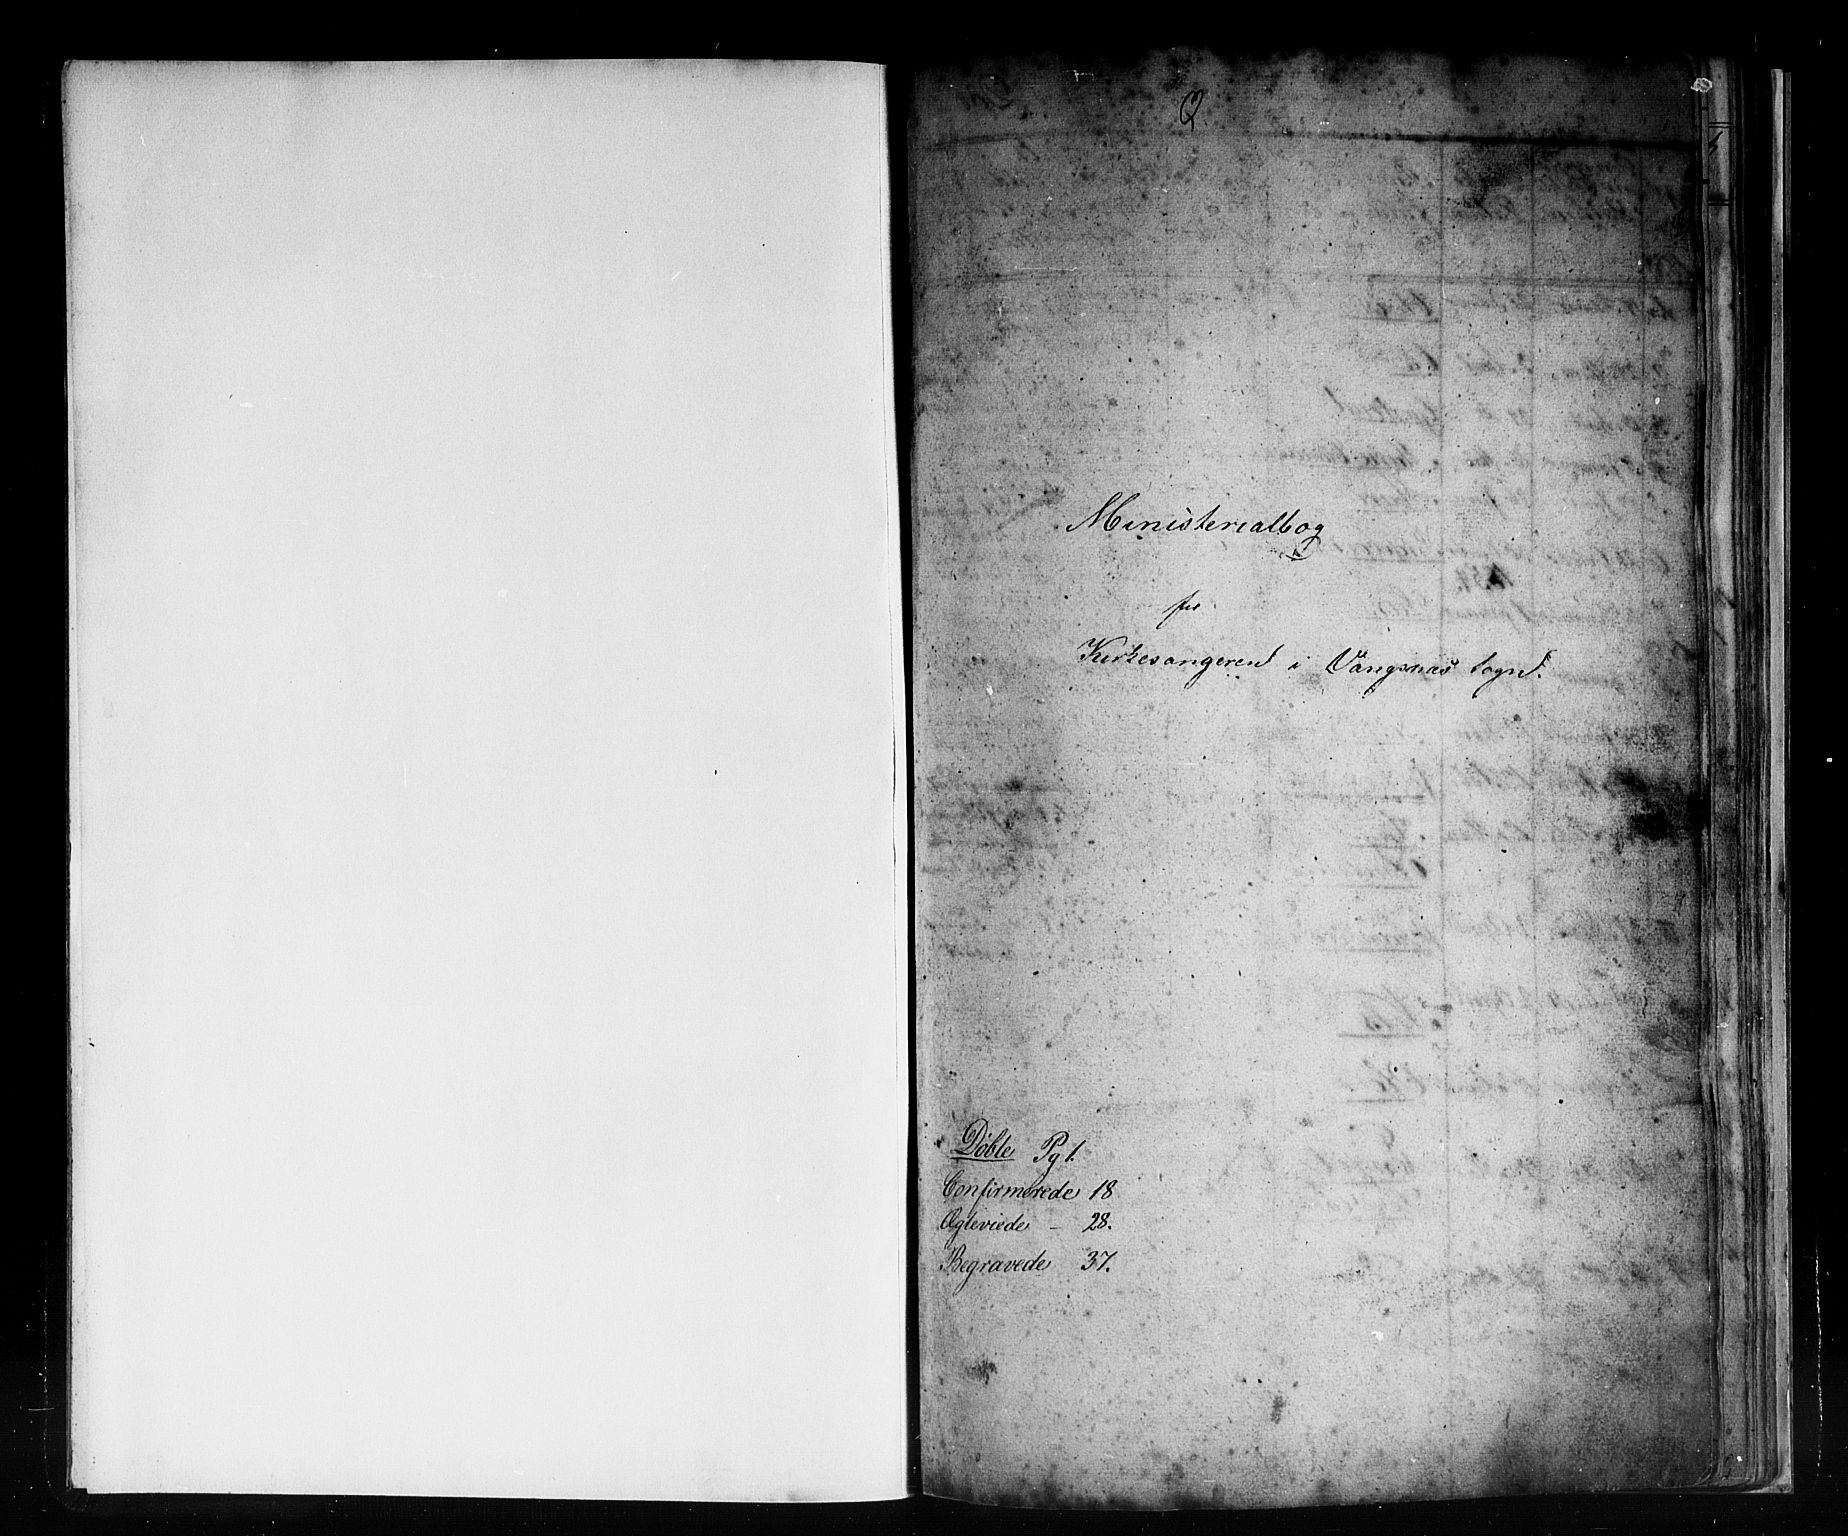 Ministerialbog
for
Kirkesangeren i Vangsnæs Sogn.
Døbte Pg 1.
Confirmerede 18
Ægteviede - 28.
Begravede 37.